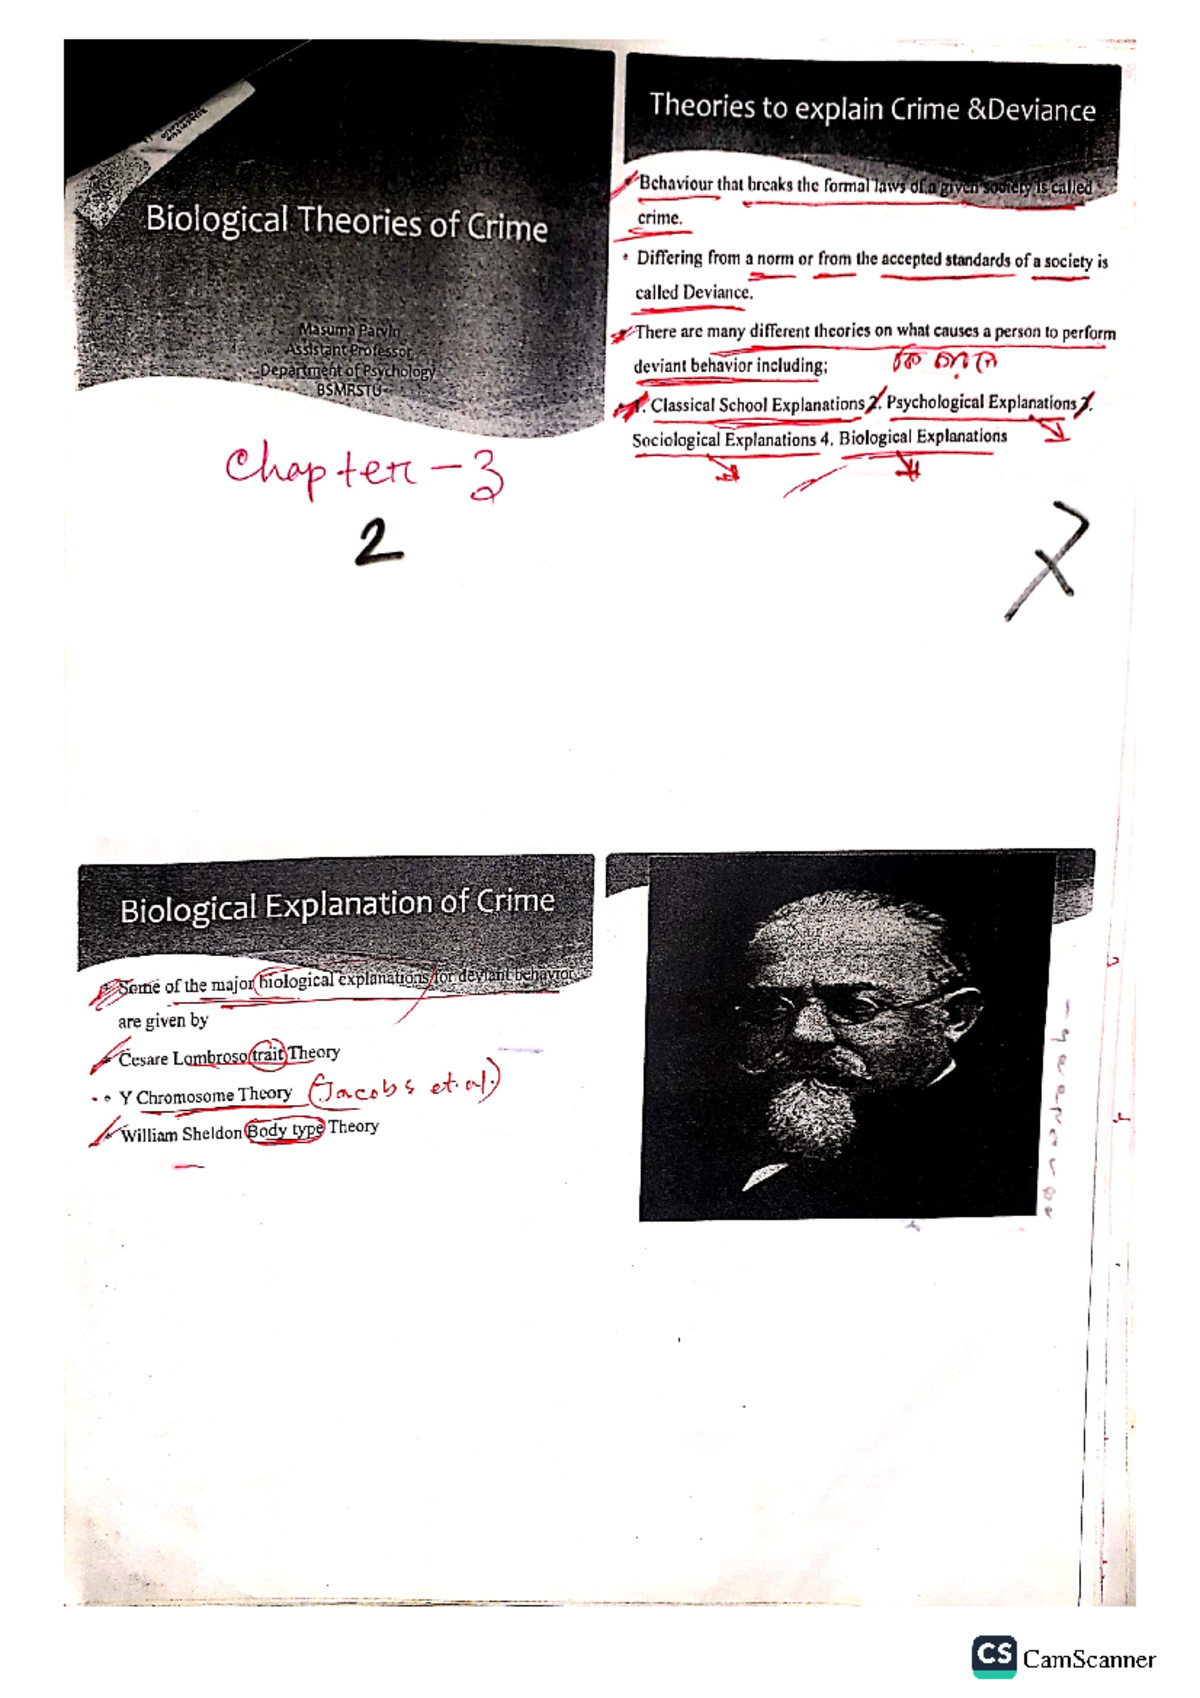 Biological Theories of Crime
Masuma Parvin
Assistant Professor
Department of Psychology
BSMRSTU
Chapter-3
2
Theories to explain Crime &Deviance
Behaviour that breaks the formal laws of a given society is called
crime.
• Differing from a norm or from the accepted standards of a society is
called Deviance.
There are many different theories on what causes a person to perform
deviant behavior including;
1. Classical School Explanations 2. Psychological Explanations 3.
Sociological Explanations 4. Biological Explanations
Biological Explanation of Crime
Some of the major biological explanations for deviant behavior
are given by
Cesare Lombroso trait Theory
• Y Chromosome Theory (Jacobs et.al)
William Sheldon Body type Theory
CS CamScanner